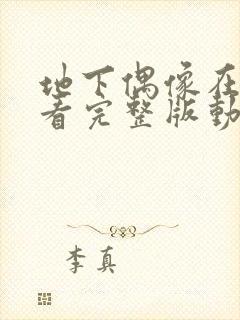 地下偶像在
看完整版動
李真